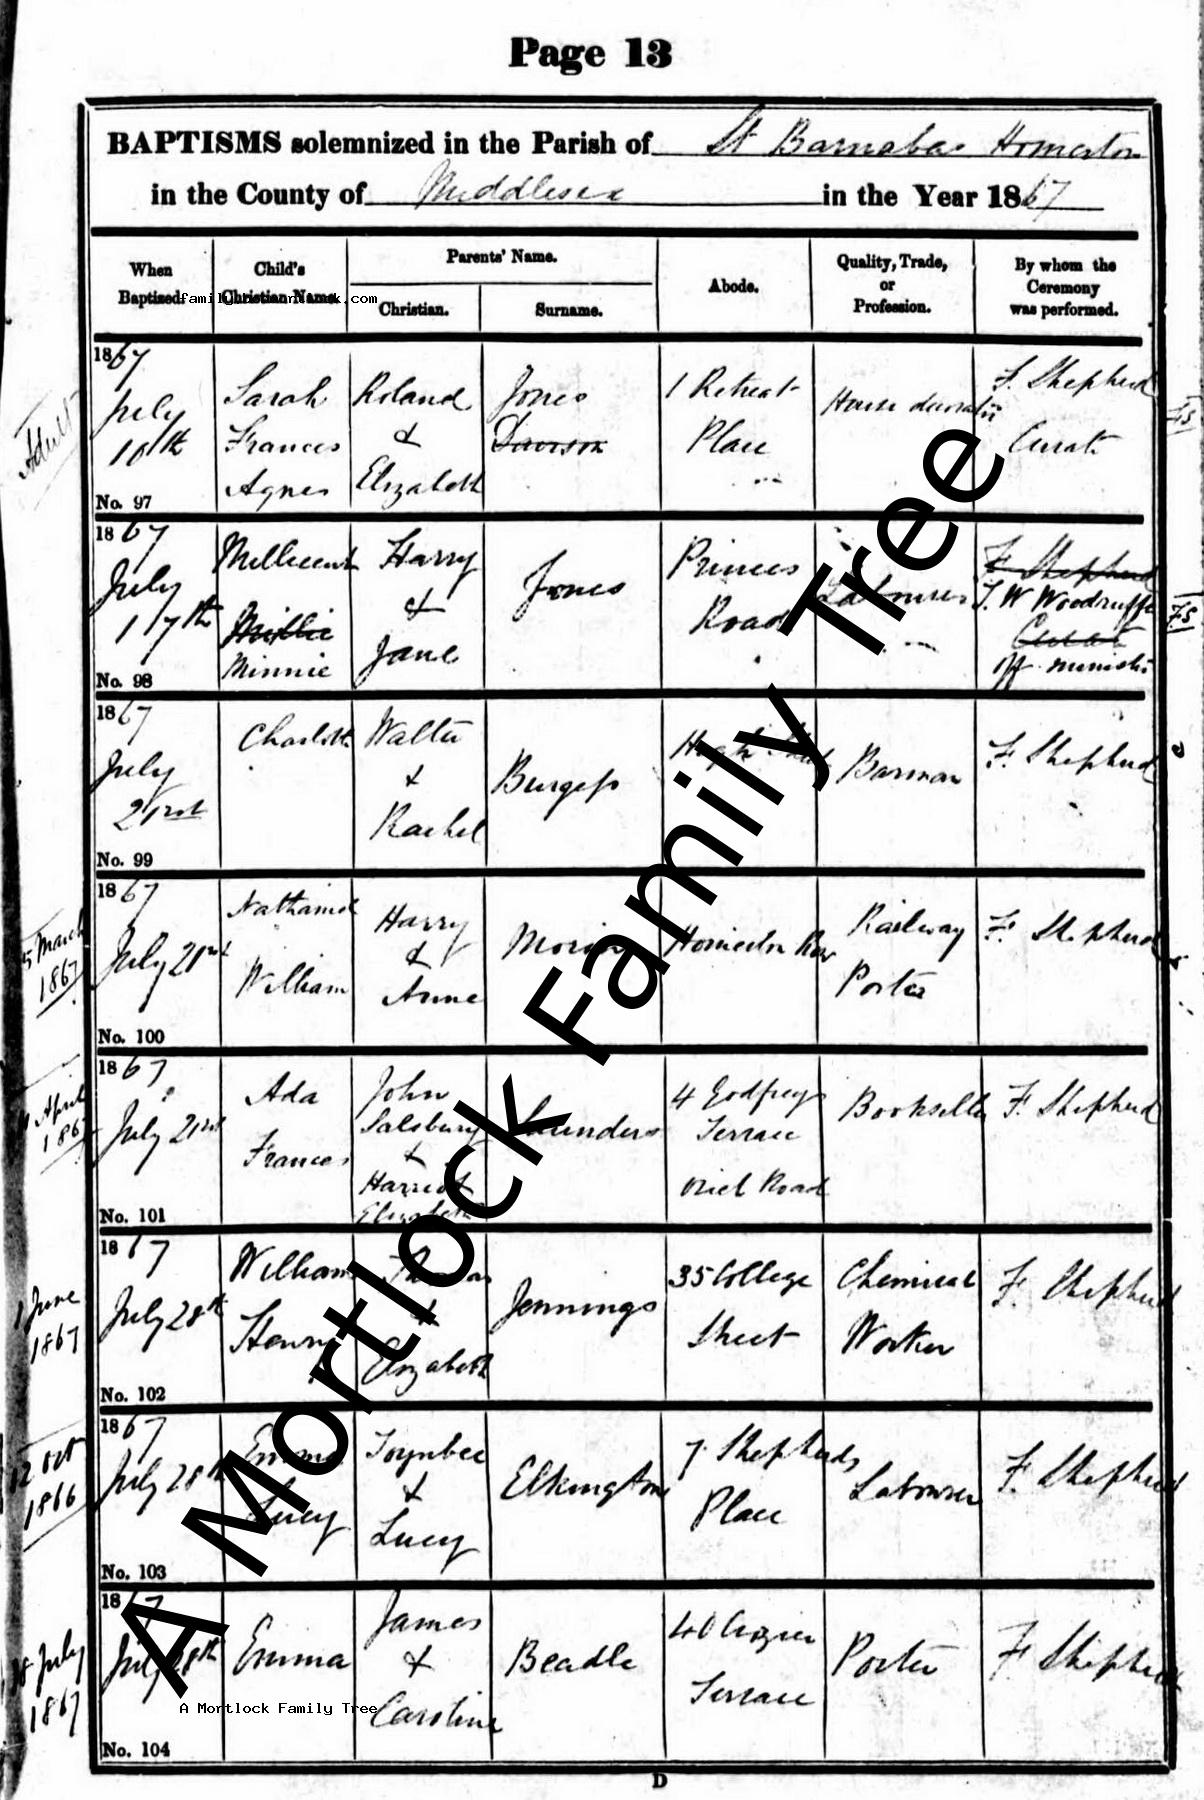 Page 13
BAPTISMS solemnized in the Parish of St Barnabas Homerton
in the County of Middlesex in the Year 1867
When Baptized.
Child's Christian Name.
Parents' Name.
Christian.
Surname.
Abode.
Quality, Trade, or Profession.
By whom the Ceremony was performed.
Adult
1867
July
10th
No. 97
Sarah
Frances
Agnes
Roland
&
Elizabeth
Jones
Davison
1 Retreat
Place
House decorator
F. Shepherd
Curate
FS
1867
July
17th
No. 98
Millicent
Millie
Minnie
Harry
&
Jane
Jones
Princes
Road
Labourer
F Shepherd
T. W Woodruffe
Curate
off. minister
FS
1867
July
21rst
No. 99
Charlotte
Walter
&
Rachel
Burgess
High
Barman
F. Shepherd
5 March
1867
1867
July 21rst
No. 100
Nathaniel
William
Harry
&
Anne
Homerton Row
Railway
Porter
F. Shepherd
April
1867
1867
July 21rst
No. 101
Ada
Frances
John
Salsbury
&
Harriet
Elizabeth
Saunders
4 Godfreys
Terrace
Oriel Road
Bookseller
F. Shepherd
1 June
1867
1867
July 28th
No. 102
William
Henry
Thomas
&
Elizabeth
Jennings
35 College
Street
Chemical
Worker
F. Shepherd
12 Oct
1866
1867
July 28th
No. 103
Emma
Lucy
Toynbee
&
Lucy
Elkington
7 Shepherds
Place
Labourer
F. Shepherd
8 July
1867
1867
July 28th
No. 104
Emma
James
&
Caroline
Beadle
40 Crozier
Terrace
Porter
F Shepherd
D
A Mortlock Family Tree
A Mortlock Family Tree